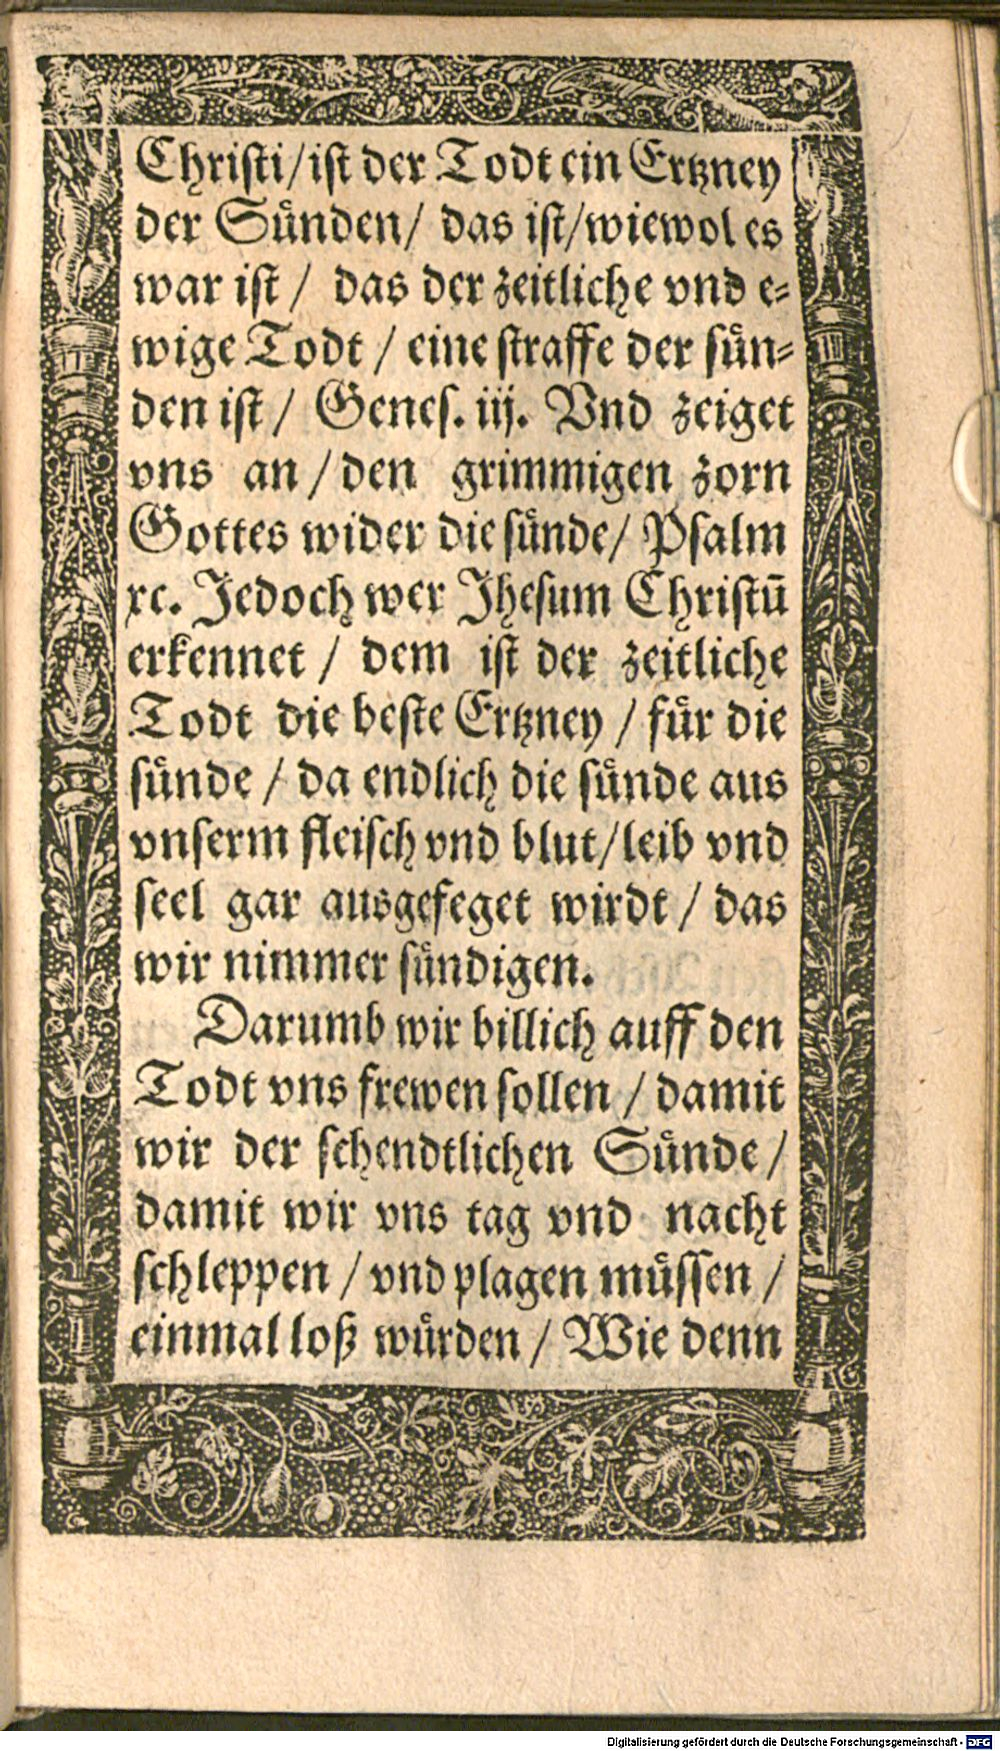 Chriſti/iſt der Todt ein Ertzney
der Suͤnden/ das iſt/wiewol es
war iſt / das der zeitliche vnd e⸗
wige Todt / eine ſtraffe der ſuͤn⸗
den iſt / Geneſ. iij. Vnd zeiget
vns an / den grimmigen zorn
Gottes wider die ſuͤnde/ Pſalm
xc. Jedoch wer Jheſum Chriſtū
erkennet / dem iſt der zeitliche
Todt die beſte Ertzney / fuͤr die
ſuͤnde / da endlich die ſuͤnde aus
vnſerm fleiſch vnd blut/leib vnd
ſeel gar ausgefeget wirdt / das
wir nimmer ſuͤndigen.
Darumb wir billich auff den
Todt vns frewen ſollen / damit
wir der ſchendtlichen Suͤnde /
damit wir vns tag vnd nacht
ſchleppen / vnd plagen muͤſſen /
einmal loß wuͤrden / Wie denn
Digitalisierung gefördert durch die Deutsche Forschungsgemeinschaft - DFG